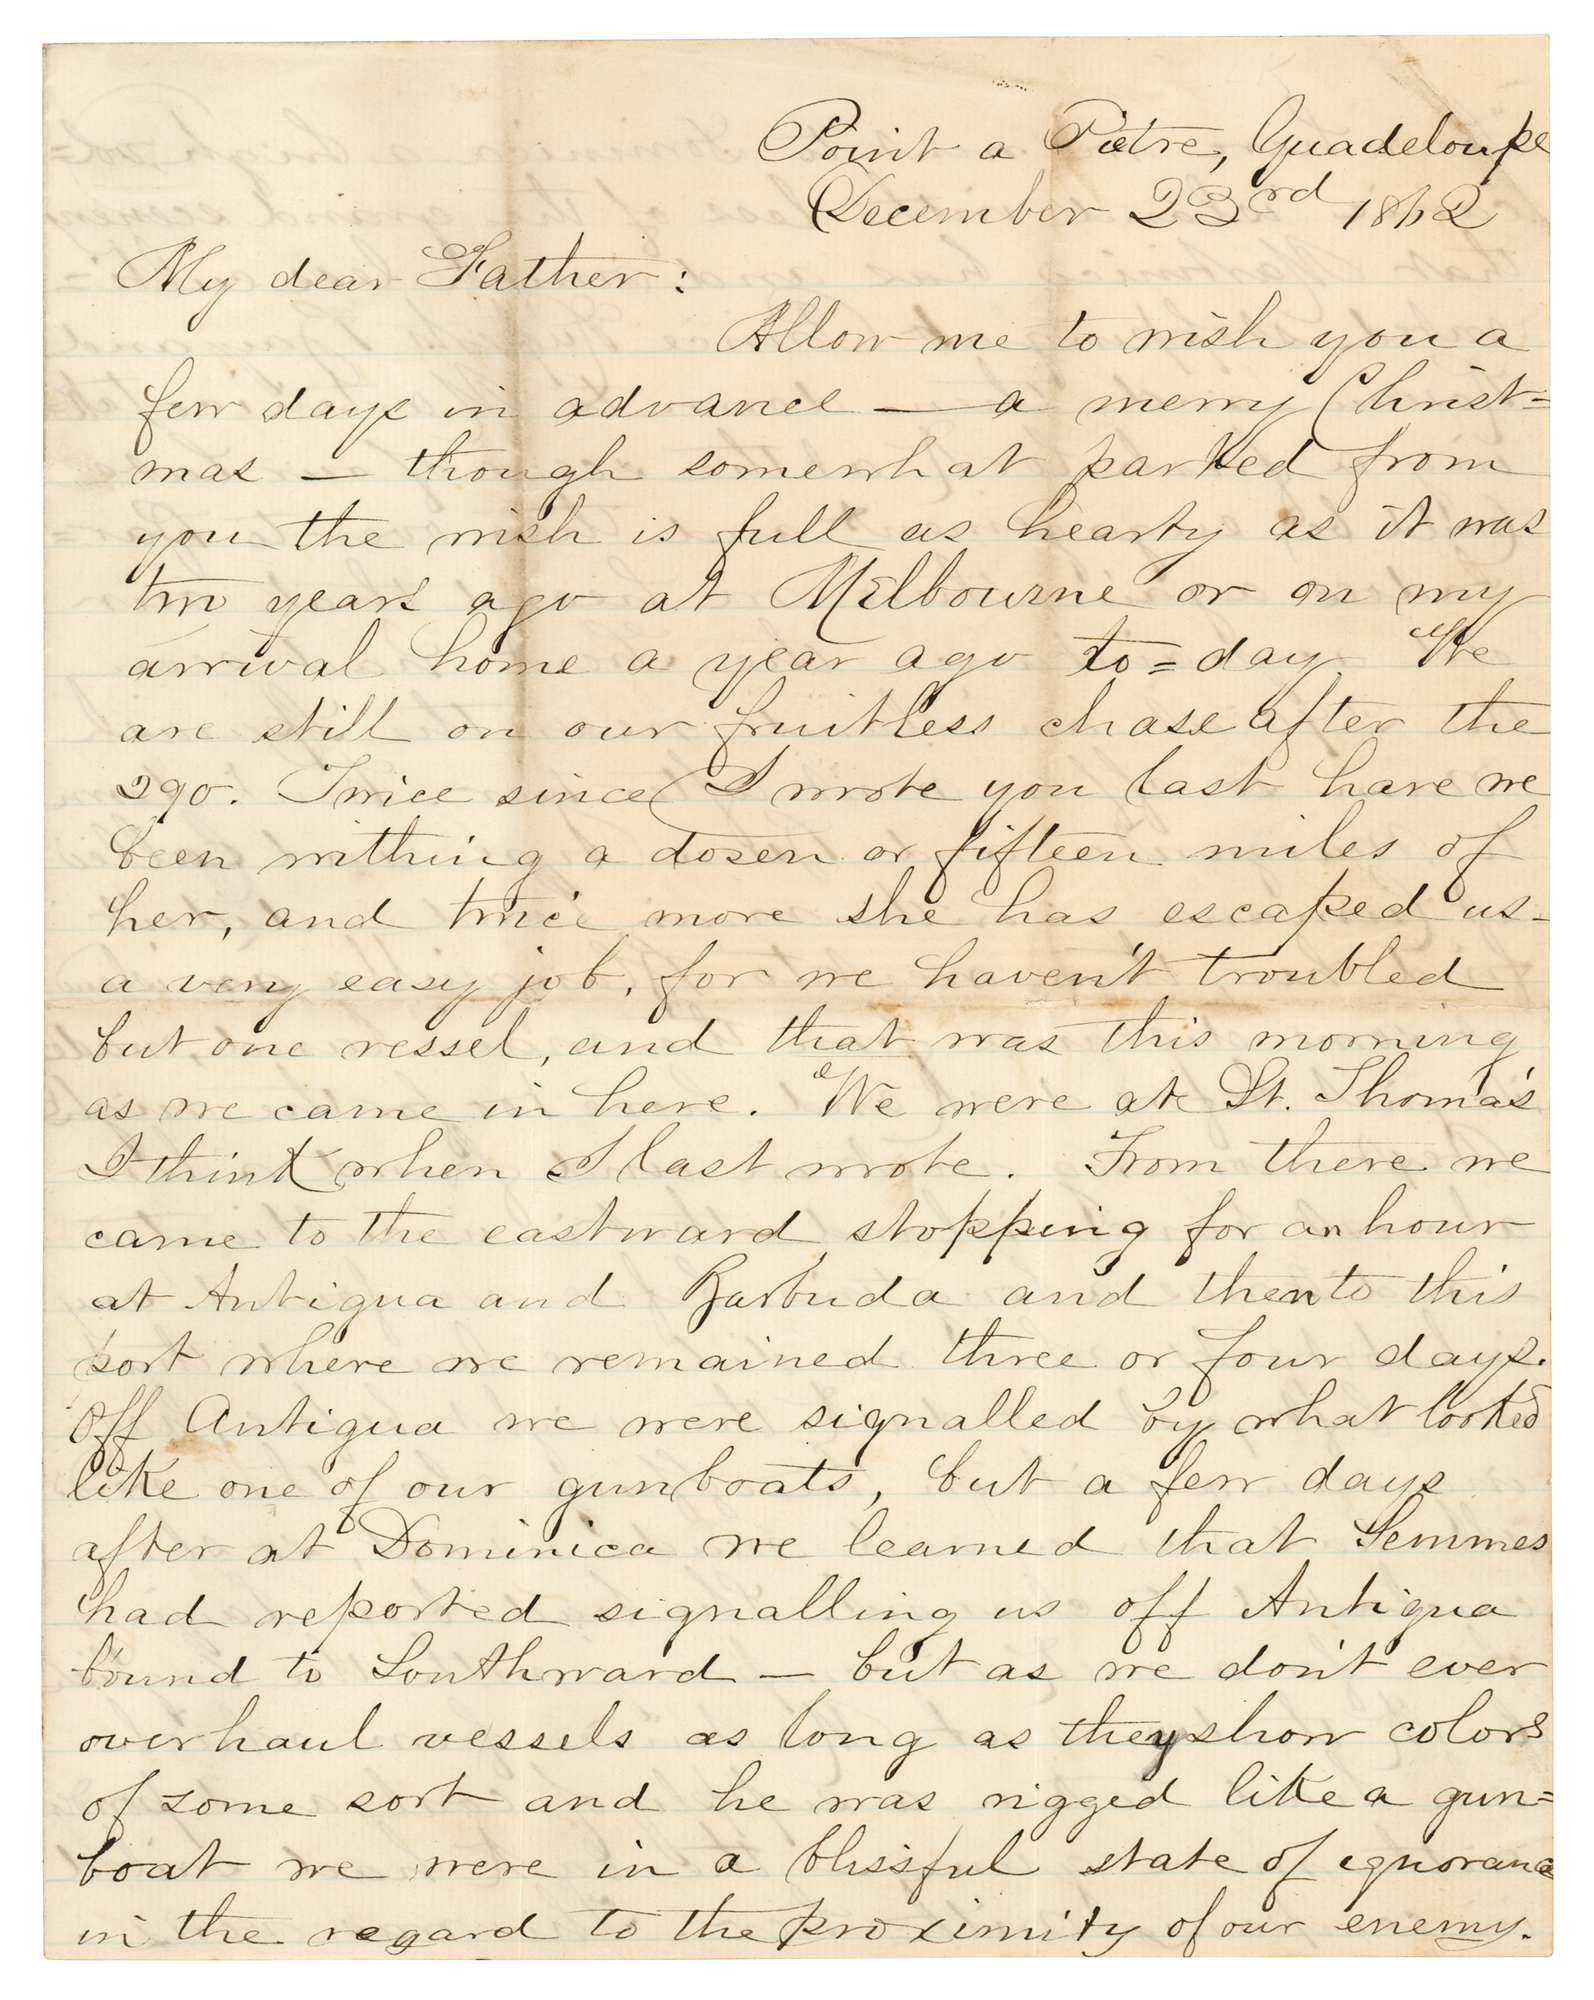 Point a Pietre, Guadeloupe
December 23rd 1862
My dear Father:
Allow me to wish you a
few days in advance — a merry Christ=
mas — though somewhat parted from
you the wish is full as hearty as it was
two years ago at Melbourne or on my
arrival home a year ago to=day. We
are still on our fruitless chase after the
290. Twice since I wrote you last have we
been withing a dozen or fifteen miles of
her, and twice more she has escaped us -
a very easy job, for we haven't troubled
but one vessel, and that was this morning
as we came in here. We were at St. Thomas
I think when I last wrote. From there we
came to the eastward stopping for an hour
at Antigua and Barbuda and then to this
port where we remained three or four days.
Off Antigua we were signalled by what looked
like one of our gunboats, but a few days
after at Dominica we learned that Semmes
had reported signalling us off Antigua
bound to Southward — but as we don't ever
overhaul vessels as long as they show colors
of some sort and he was rigged like a gun=
boat we were in a blissful state of ignorance
in the regard to the proximity of our enemy.